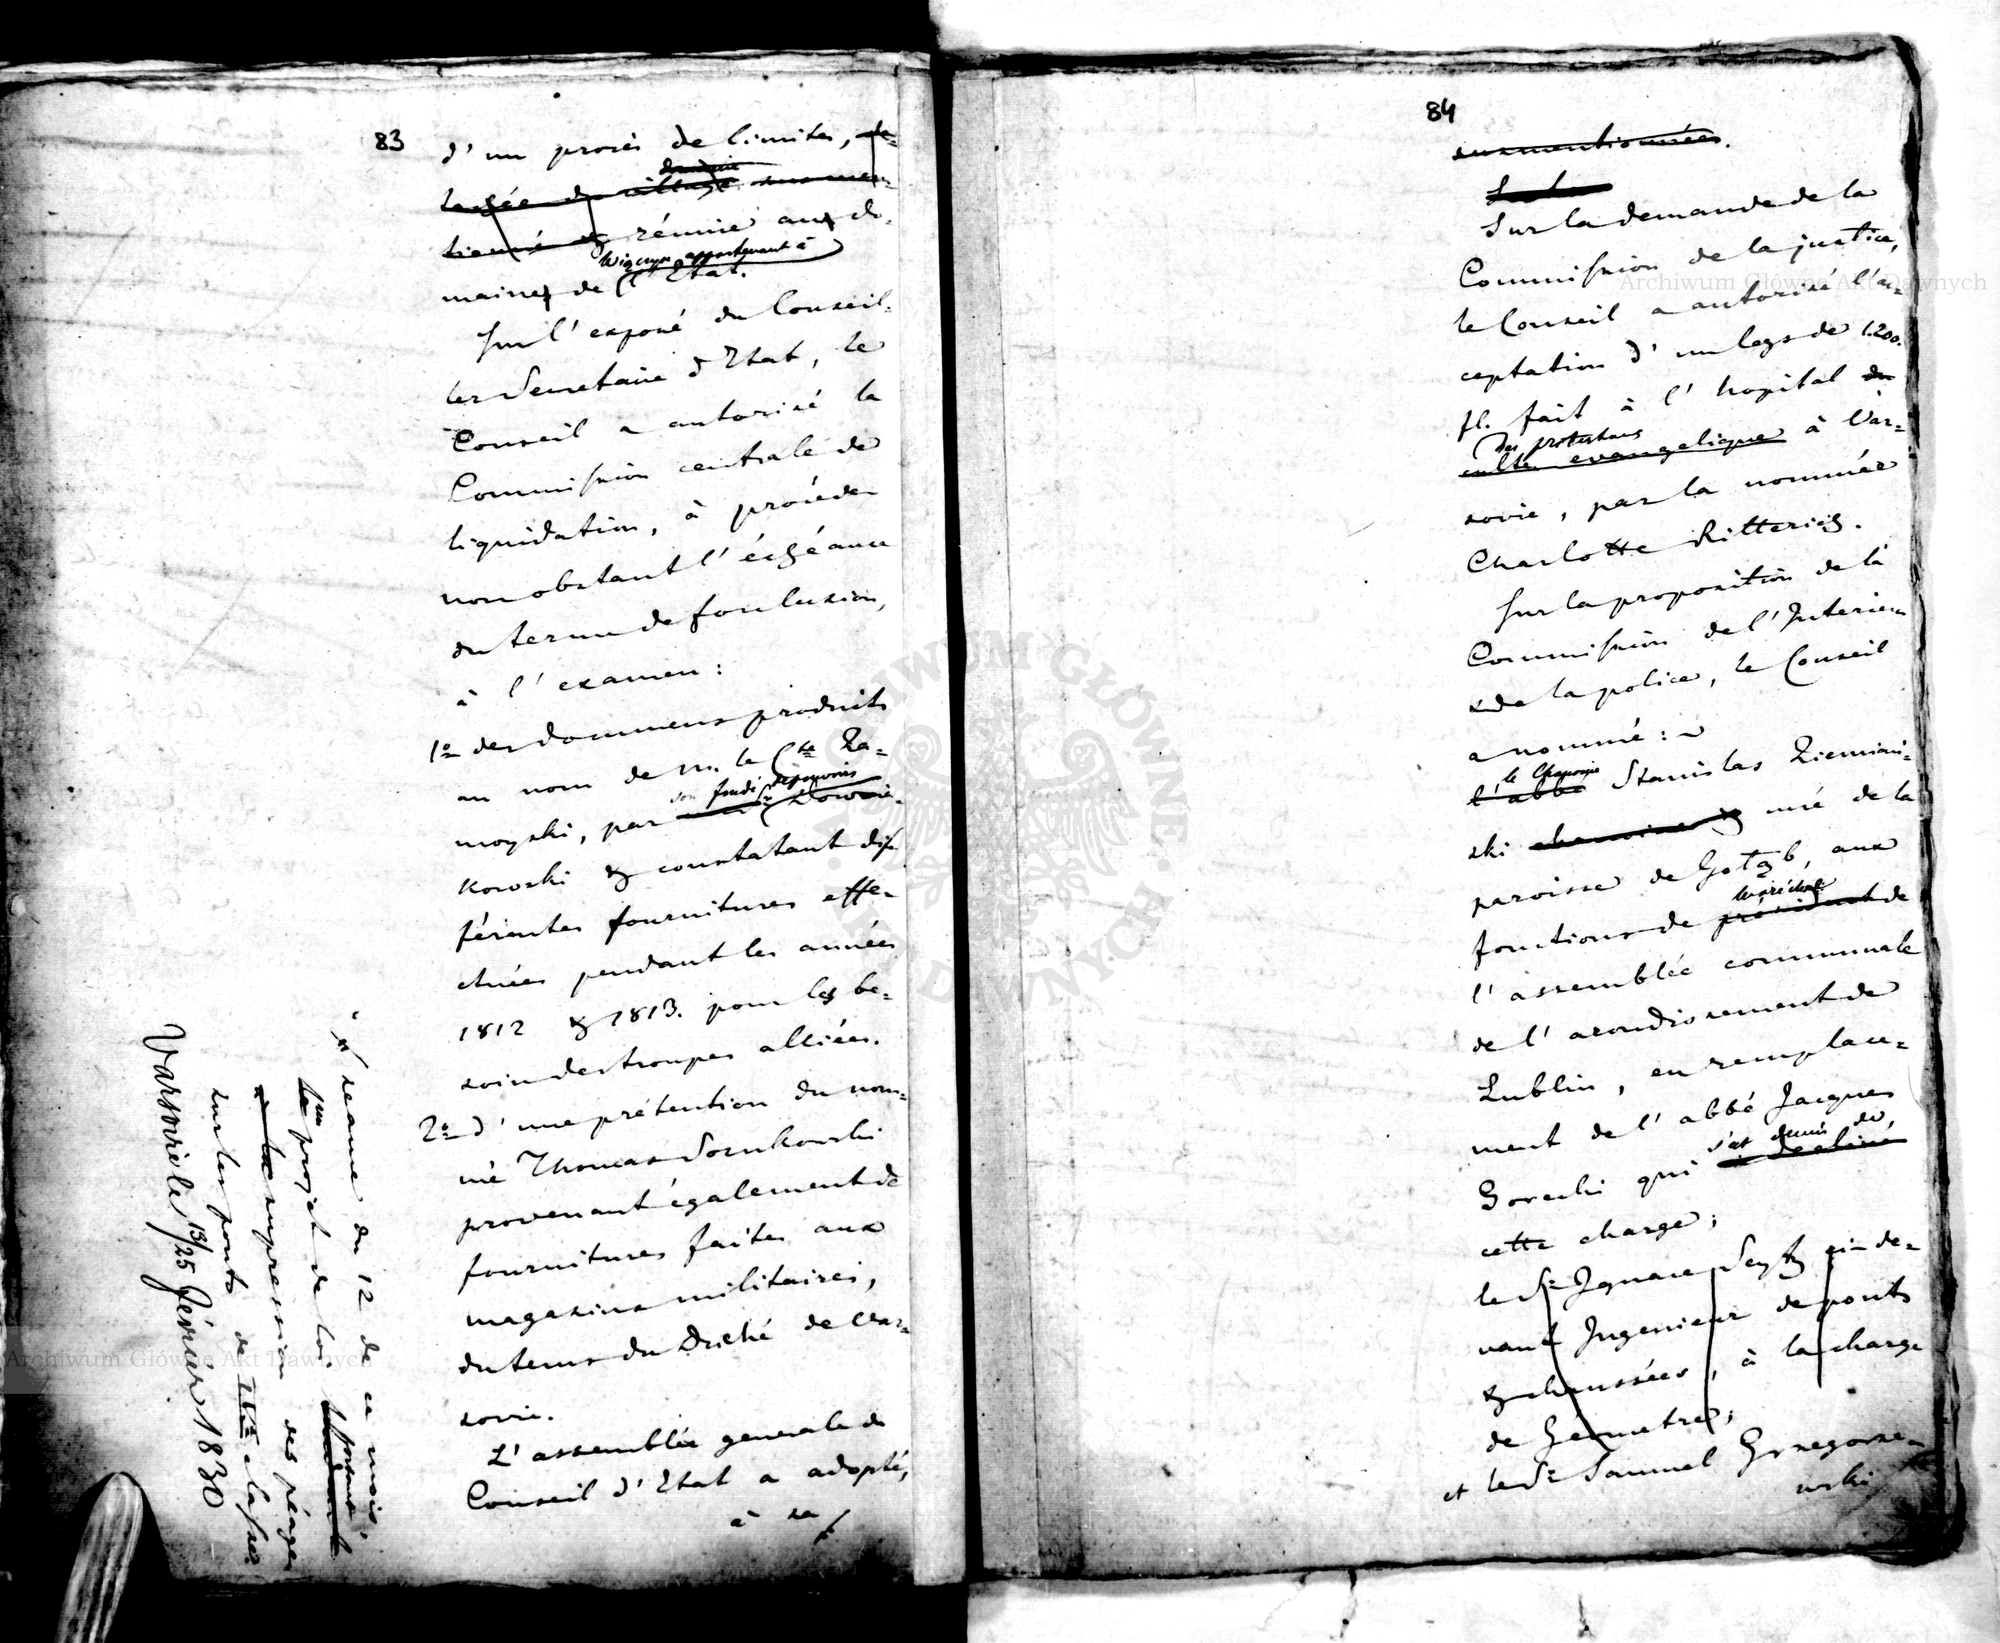 83
d'un procès de limites, de-
tachée du village susmen-
domaine
tionné & réunie aux do-
appartenant à
maines de l'Etat.
Sur l'exposé du Conseil-
ler Secretaire d'Etat, le
Conseil a autorisé la
Commission centrale de
liquidation, à procéder
nonobstant l'échéance
du terme de forclusion,
à l'examen:
1º des documens produits
au nom de M. le Cte Za-
son fondé de pouvoirs
moyski, par Dowoie-
kowski & constatant dif-
férentes fournitures effe-
ctuées pendant les années
1812 & 1813. pour les be-
soins des troupes alliées.
2º d'une prétention du nom-
mé Thomas Sosnkowski
provenant également de
fournitures faites aux
magasins militaires,
du tems du Duché de Var-
sovie.
L'assemblée generale du
Conseil d'Etat a adopté,
à sa
seance du 12 de ce mois,
un projet de loi portant
la supression des péages
sur les ponts de IIIe classe.
Varsovie le 13/25 Février 1830
84
susmentionnées.
Sur la demande de la
Commission de la justice,
le Conseil a autorisé l'ac-
ceptation d'un legs de 1.200.
fl. fait à l'hopital du
des protestans
culte evangelique à Var-
sovie, par la nommée
Charlotte Ritterich.
Sur la proposition de la
Commission de l'Interieur
& de la police, le Conseil
a nommé:
le Chanoine
l'abbé Stanislas Ziemiań-
ski chanoine & curé de la
paroisse de Gołąb, aux
fonctions de président de
l'assemblée communale
de l'arondissement de
Lublin, en remplace-
ment de l'abbé Jacques
s'est demis de
Gorecki qui a decliné
cette charge;
le Sr Ignace Seytz ci-de-
vant Ingenieur de ponts
& chaussées, à la charge
de Géometre;
et le Sr Samuel Grzegorze-
wski
Archiwum Główne Akt Dawnych
Archiwum Główne Akt Dawnych
ARCHIWUM GŁÓWNE AKT DAWNYCH